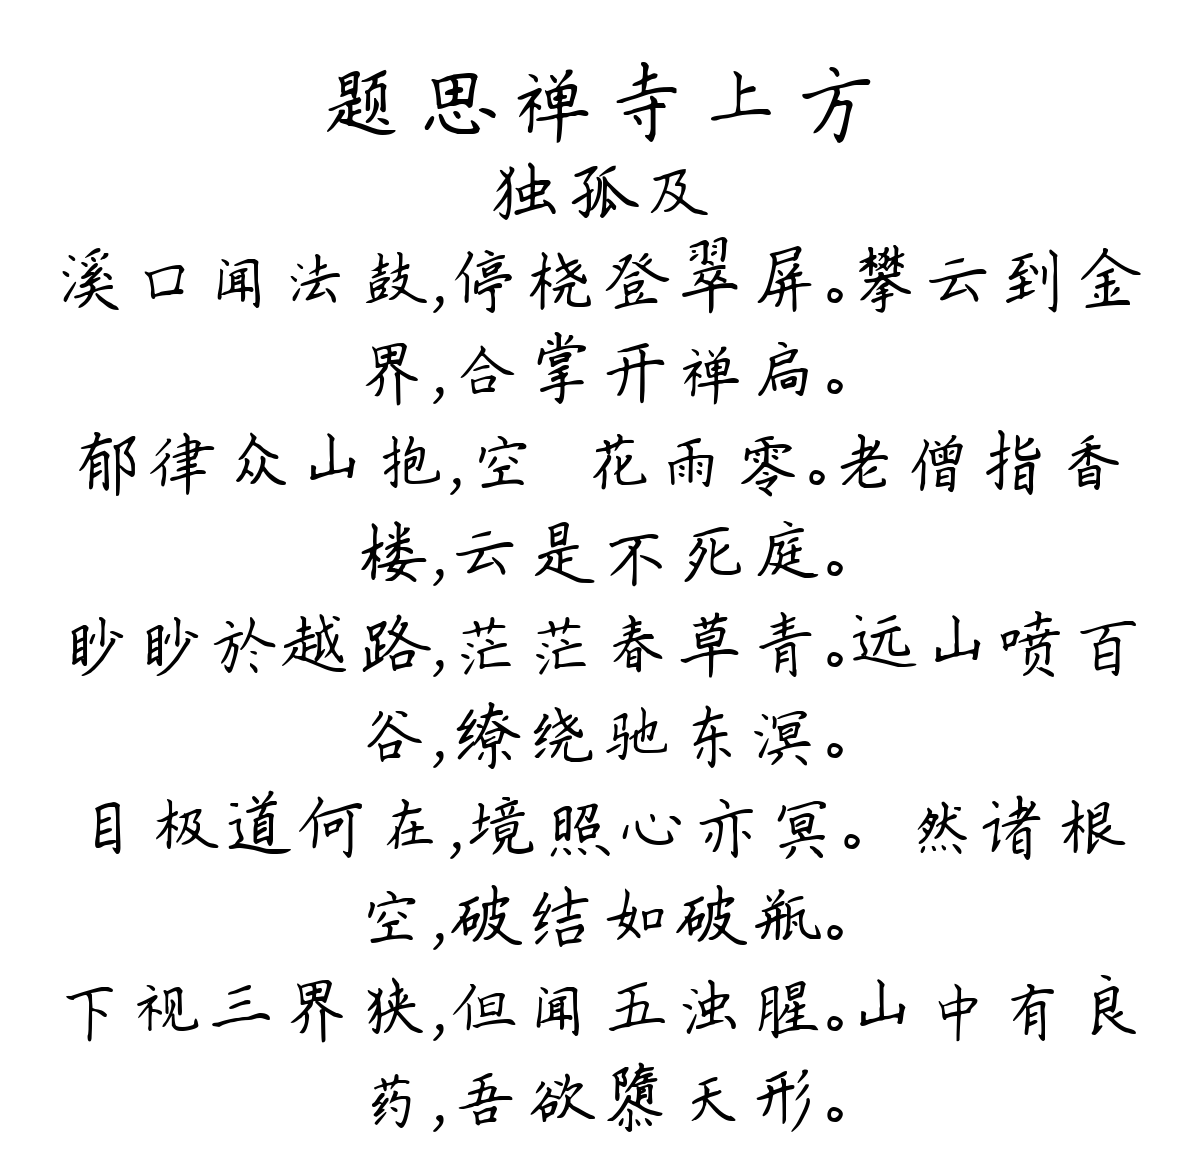 题思禅寺上方
独孤及
溪口闻法鼓,停桡登翠屏。攀云到金
界,合掌开禅扃。
郁律众山抱,空 花雨零。老僧指香
楼,云是不死庭。
眇眇於越路,茫茫春草青。远山喷百
谷,缭绕驰东溟。
目极道何在,境照心亦冥。 然诸根
空,破结如破瓶。
下视三界狭,但闻五浊腥。山中有良
药,吾欲隳天形。